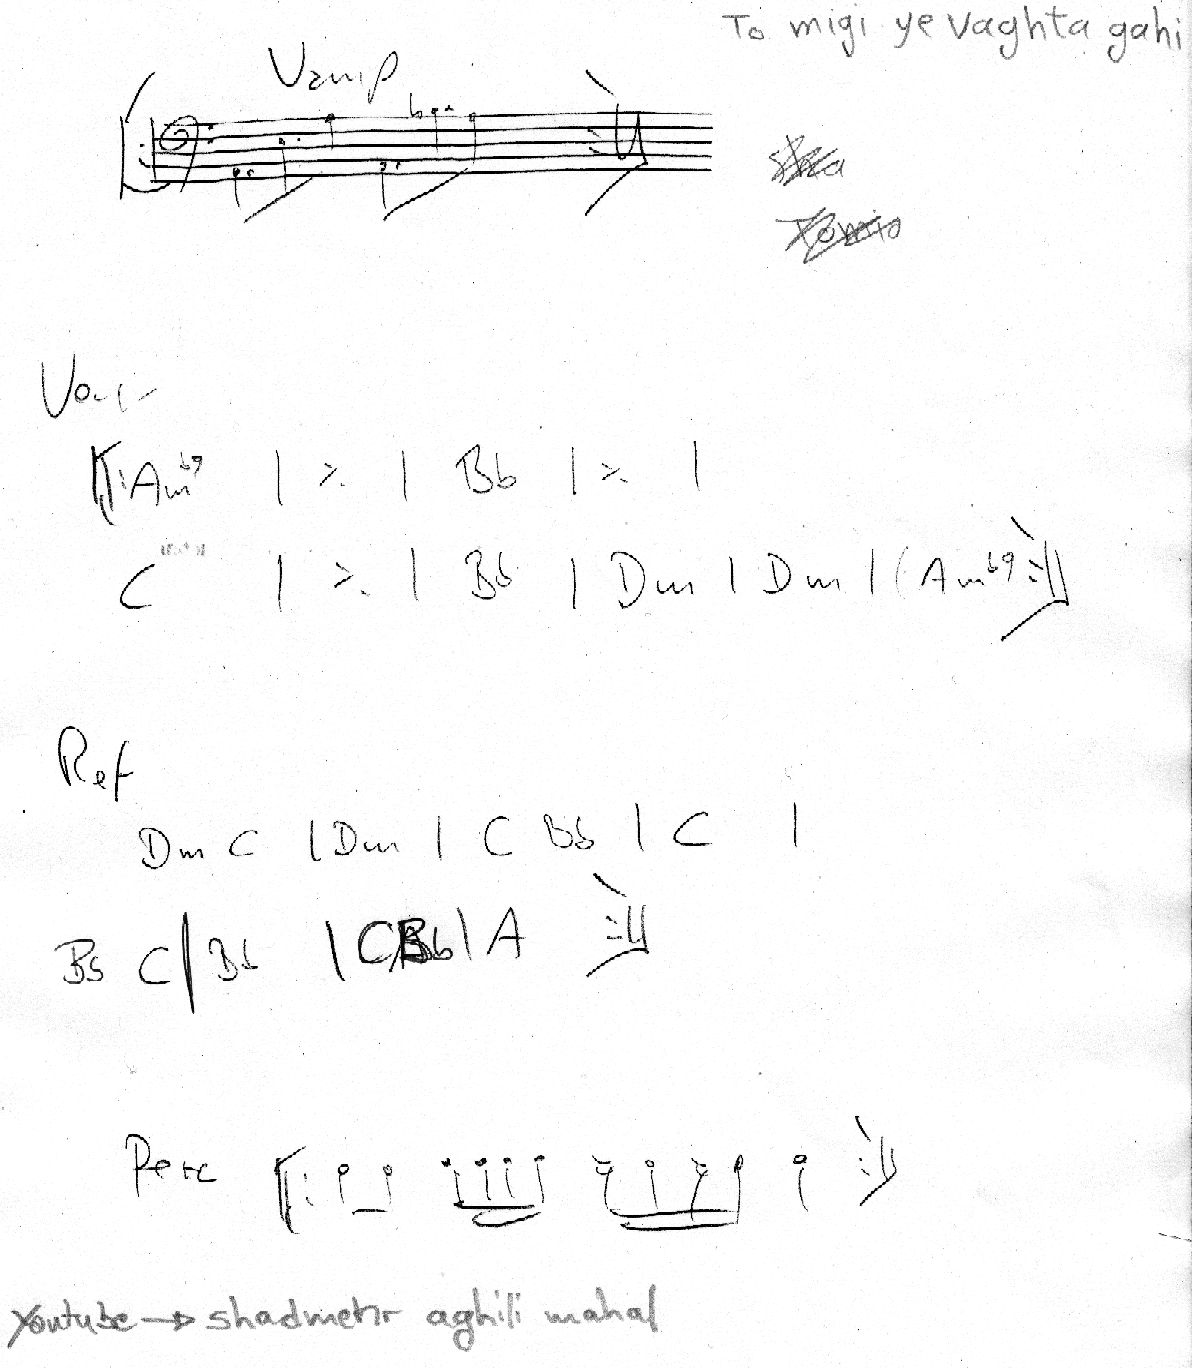 To migi ye vaghta gahi
Vamp
Am b9 | ٪ | Bb | ٪ |
C | ٪ | Bb | Dm | Dm | ( Am b9 :||
Ref
Dm C | Dm | C Bb | C |
Bb C | Bb | C/Bb | A :||
Perc
Youtube → shadmehr aghili mahal